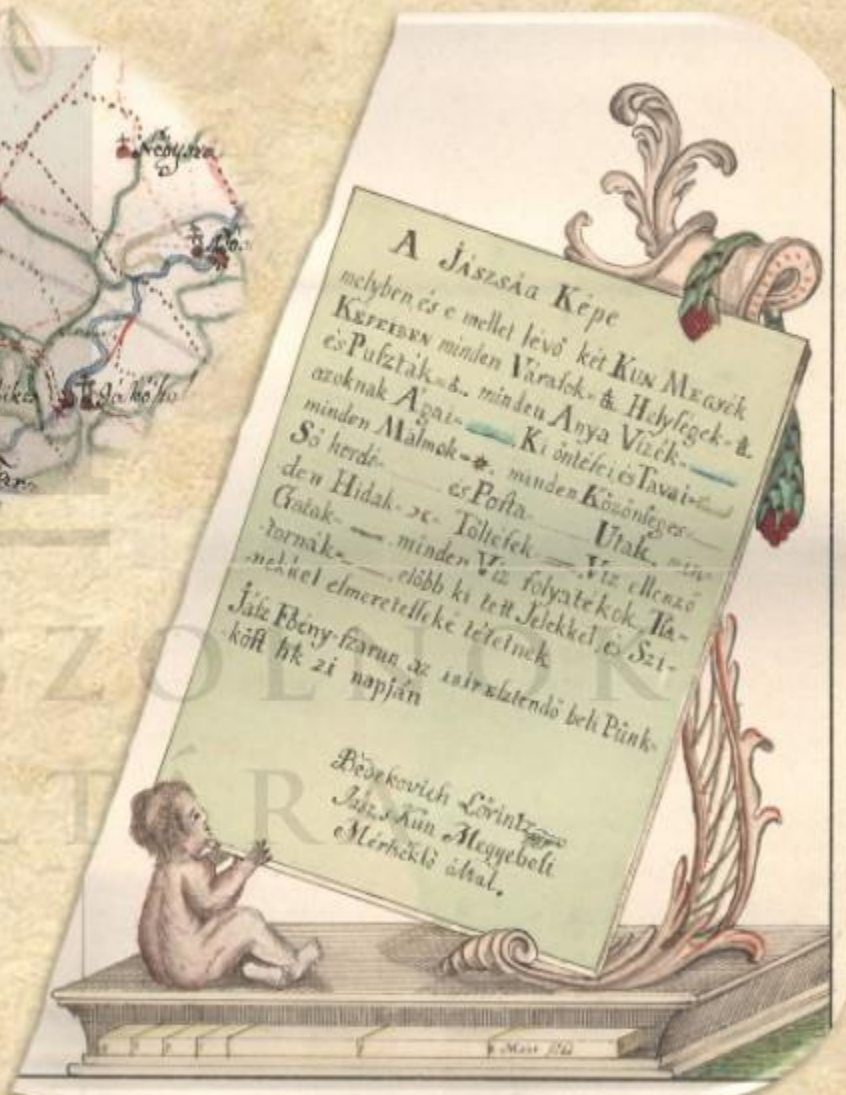 A JÁSZSÁG Képe
melyben, és e mellet lévő két KUN MEGYÉK
KEPEIBEN minden Várasok- & Helységek- &
és Pufzták- &. minden Anya Vizék-
azoknak Ágai- Ki öntéfei, és Tavai-
minden Málmok- minden Közönséges-
Só hordó- és Pofta- Utak, min-
den Hidak- Töltéfek Viz ellenző
Gátak- minden Viz folyatékok, Ta-
tornák- előbb ki tett Jelekkel, és Szi-
nekkel elmeretelleké tétetnek
Jász Fbény-fzarun, az esztendő beli Pünk-
köft 21 napján
Bedekovich Lőrintz
Jász, s Kun Megyebeli
Mérhéklő által.
Négysza
Jákóhal
SZOLNOK
TÁR